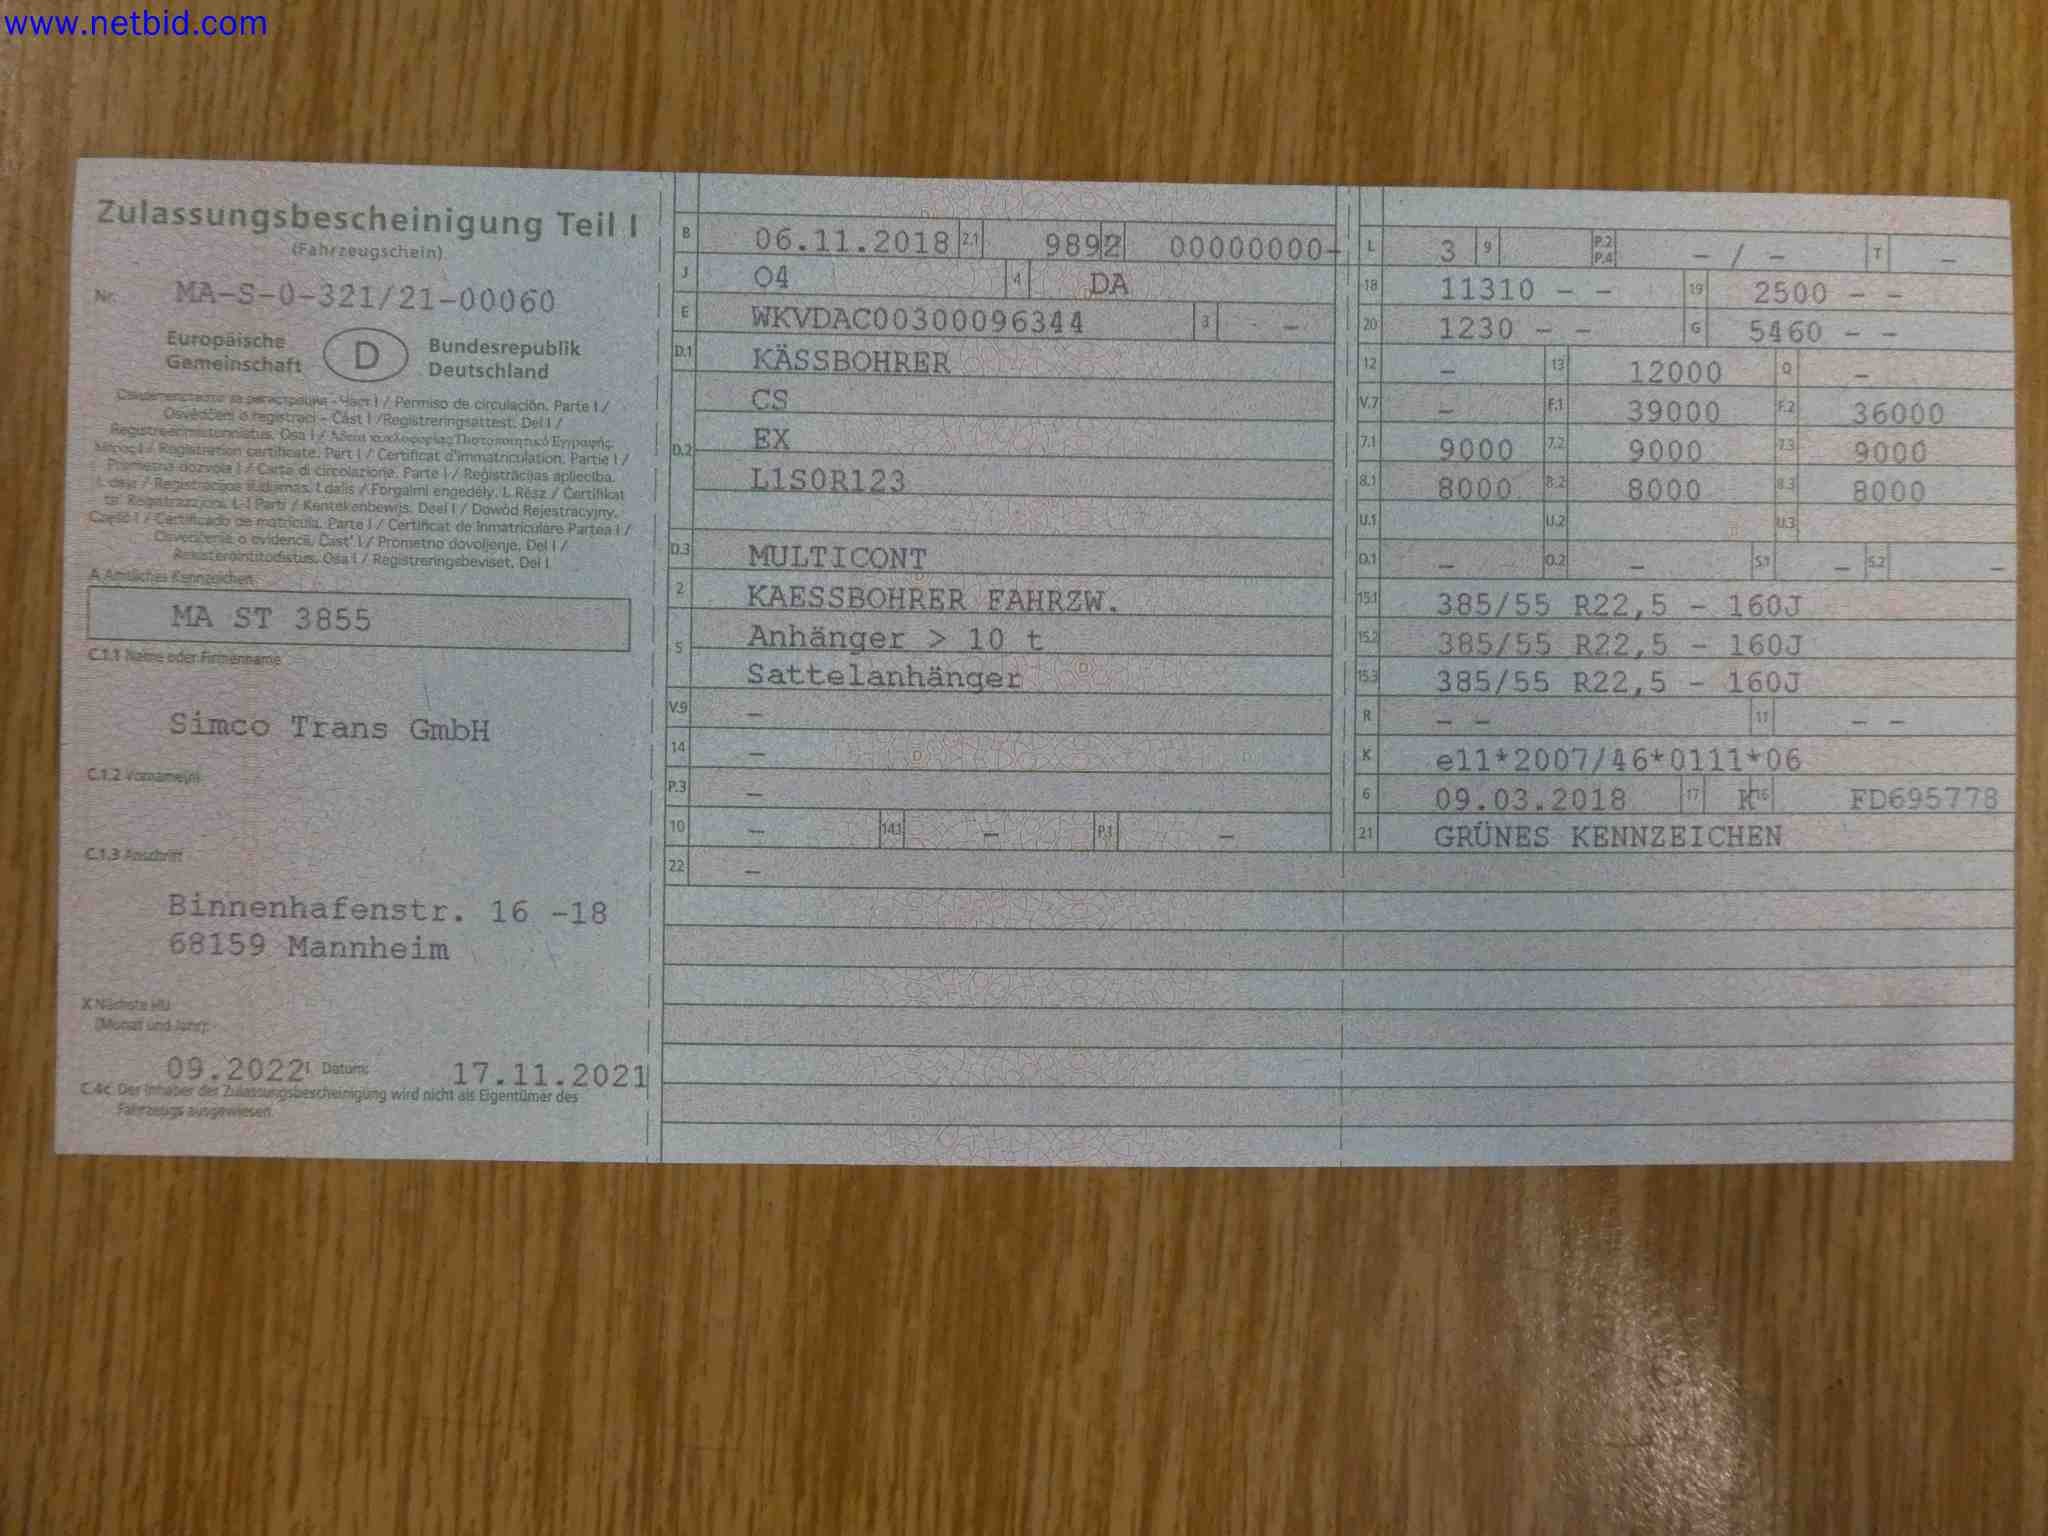 www.netbid.com
Zulassungsbescheinigung Teil I
(Fahrzeugschein)
Nr. MA-S-0-321/21-00060
Europäische Gemeinschaft
D
Bundesrepublik Deutschland
Част I / Permiso de circulación. Parte I /
Osvědčení o registraci - Část I / Registreringsattest. Del I /
Osa I / Άδεια κυκλοφορίας
/ Registration certificate. Part I / Certificat d'immatriculation. Partie I /
Prometna dozvola I / Carta di circolazione. Parte I / Reģistrācijas apliecība.
I. daļa / Registracijos liudijimas. I dalis / Forgalmi engedély. I. Rész / Ċertifikat
ta' Reġistrazzjoni. L-I Parti / Kentekenbewijs. Deel I / Dowód Rejestracyjny.
Część I / Certificado de matrícula. Parte I / Certificat de înmatriculare Partea I /
Osvedčenie o evidencii. Časť I / Prometno dovoljenje. Del I /
Rekisteröintitodistus. Osa I / Registreringsbeviset. Del I
A Amtliches Kennzeichen
MA ST 3855
C.1.1 Name oder Firmenname
Simco Trans GmbH
C.1.2 Vorname(n)
C.1.3 Anschrift
Binnenhafenstr. 16 -18
68159 Mannheim
X Nächste HU
(Monat und Jahr):
09.2022 I Datum: 17.11.2021
C.4c Der Inhaber der Zulassungsbescheinigung wird nicht als Eigentümer des
Fahrzeugs ausgewiesen.
B 06.11.2018 2.1 9892 00000000-
J O4 4 DA
E WKVDAC00300096344 3 -
D.1 KÄSSBOHRER
D.2 CS
EX
L1S0R123
D.3 MULTICONT
2 KAESSBOHRER FAHRZW.
5 Anhänger > 10 t
Sattelanhänger
V.9 -
14 -
P.3 -
10 - 14.1 - P.1 -
22 -
L 3 9 P.2 P.4 - / - T -
18 11310 - - 19 2500 - -
20 1230 - - G 5460 - -
12 - 13 12000 Q -
V.7 - F.1 39000 F.2 36000
7.1 9000 7.2 9000 7.3 9000
8.1 8000 8.2 8000 8.3 8000
U.1 U.2 U.3
O.1 - O.2 - S.1 - S.2 -
15.1 385/55 R22,5 - 160J
15.2 385/55 R22,5 - 160J
15.3 385/55 R22,5 - 160J
R - - 11 - -
K e11*2007/46*0111*06
6 09.03.2018 17 K 16 FD695778
21 GRÜNES KENNZEICHEN